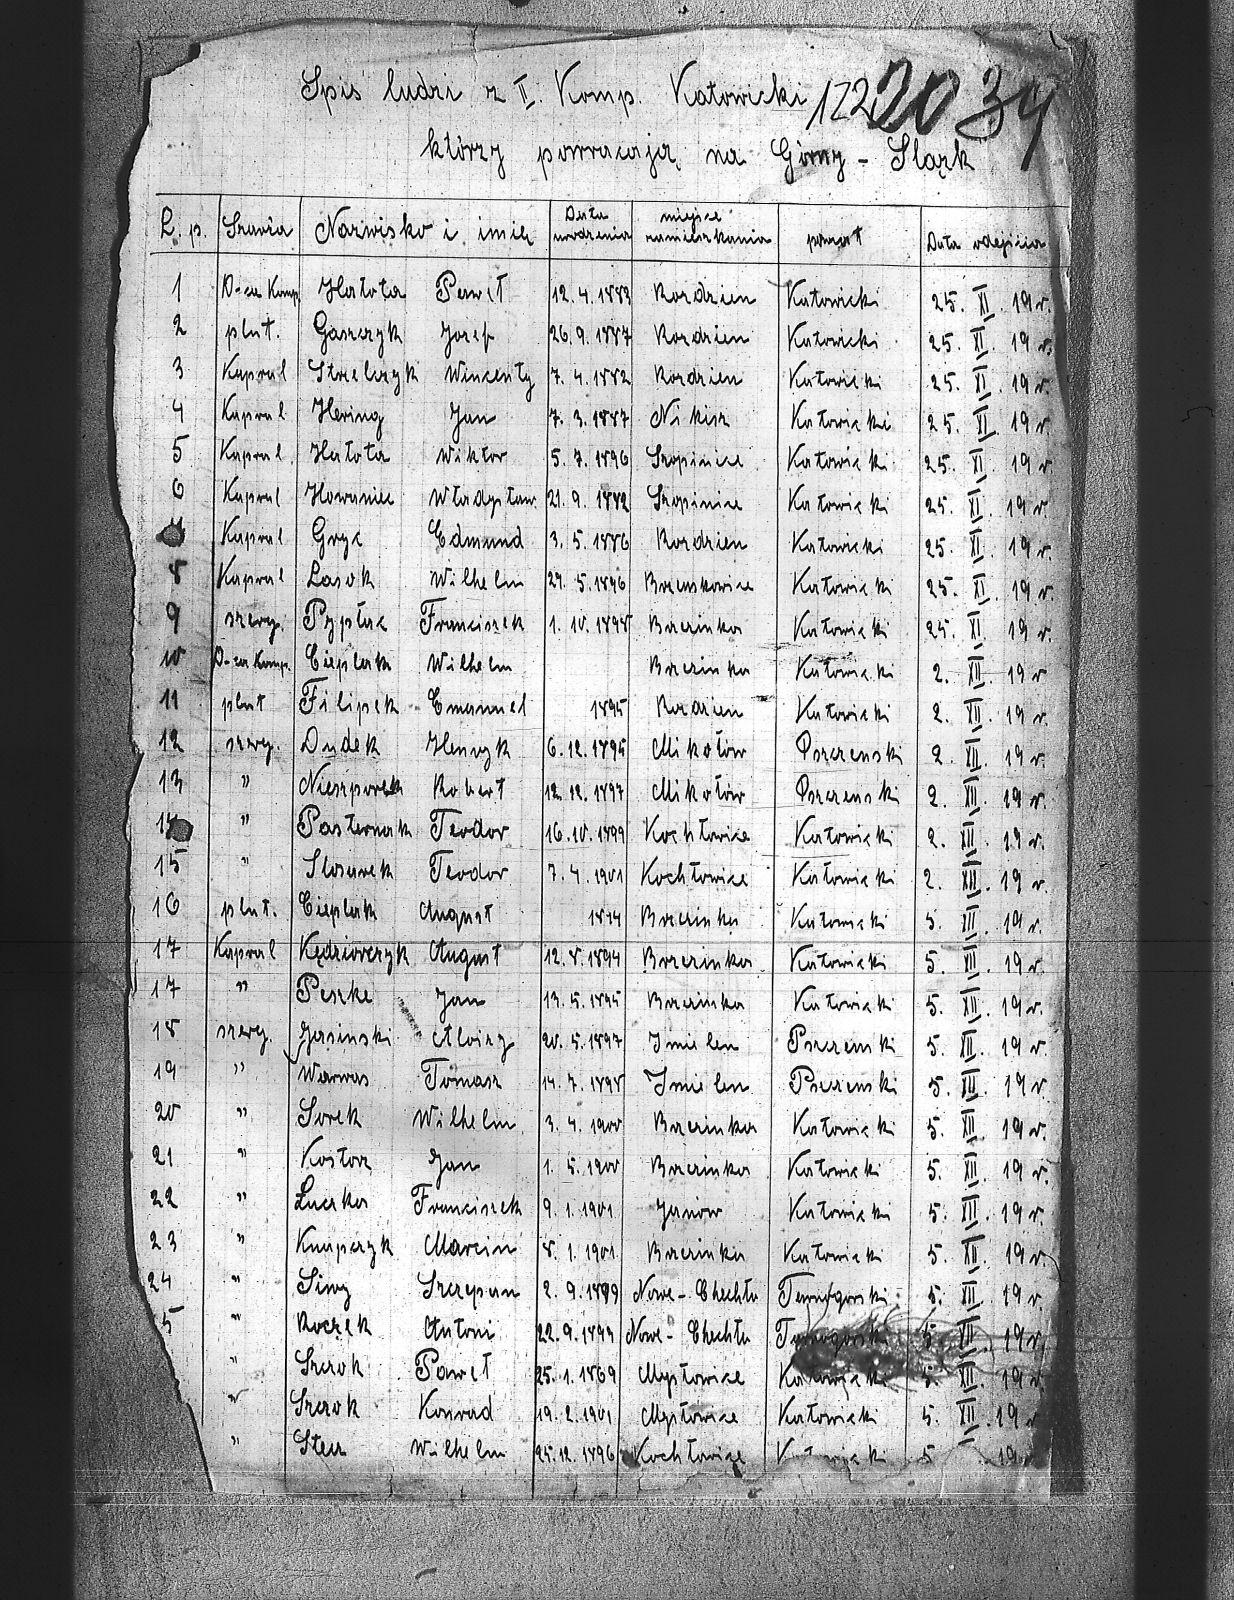 Spis ludzi z II. Komp. Katowicki 122 20 34
którzy powracają na Górny - Slązk
L. p. Szarża Nazwisko i imię Data urodzenia miejsce zamieszkania powiat Data odejścia
1 D-ca Komp. Hałota Paweł 12. 4. 1883 Rozdzien Katowicki 25. XI. 19 r.
2 plut. Gaszczyk Jozef 26. 9. 1887 Rozdzien Katowicki 25. XI. 19 r.
3 Kapral Strzelczyk Wincenty 7. 4. 1882 Rozdzien Katowicki 25. XI. 19 r.
4 Kapral Hering Jan 7. 3. 1887 Nikisz Katowicki 25. XI. 19 r.
5 Kapral Hałota Wiktor 5. 7. 1896 Szopinice Katowicki 25. XI. 19 r.
6 Kapral Howaniec Władysław 21. 9. 1882 Szopinice Katowicki 25. XI. 19 r.
Kapral Gryc Edmund 3. 5. 1886 Rozdzien Katowicki 25. XI. 19 r.
8 Kapral Lasok Wilhelm 27. 5. 1896 Brzenskowice Katowicki 25. XI. 19 r.
9 szereg. Pypłac Franciszek 1. 10. 1898 Brzezinka Katowicki 25. XI. 19 r.
10 D-ca Komp. Cieplak Wilhelm Brzezinka Katowicki 2. XII. 19 r
11 plut Filipek Emanuel 1895 Rozdzien Katowicki 2. XII. 19 r.
12 szereg. Dudek Henryk 6. 12. 1895 Mikołów Pszczenski 2. XII. 19 r.
13 " Nieszporek Robert 12. 12. 1897 Mikołów Pszczenski 2. XII. 19 r.
14 " Pasternak Teodor 16. 10. 1899 Kochłowice Katowicki 2. XII. 19 r.
15 " Slosarek Teodor 7. 4. 1901 Kochłowice Katowicki 2. XII. 19 r.
16 plut. Cieplak August 1874 Brzezinka Katowicki 5. XII. 19 r.
17 Kapral Kędziorczyk August 12. 8. 1894 Brzezinka Katowicki 5. XII. 19 r.
17 " Peszke Jan 13. 5. 1895 Brzezinka Katowicki 5. XII. 19 r.
18 szereg. Jasinski Alojzy 20. 5. 1897 Imielen Pszczenski 5. XII. 19 r.
19 " Warwas Tomasz 14. 7. 1898 Imielen Pszczenski 5. XII. 19 r.
20 " Sorek Wilhelm 3. 4. 1900 Brzezinka Katowicki 5. XII. 19 r.
21 " Kostorz Jan 1. 5. 1900 Brzezinka Katowicki 5. XII. 19 r.
22 " Łuczka Franciszek 9. 1. 1901 Janów Katowicki 5. XII. 19 r.
23 " Knapczyk Marcin 8. 1. 1901 Brzezinka Katowicki 5. XII. 19 r.
24 " Siwy Szczepan 2. 9. 1899 Nowe - Chechło Tarnogorski 5. XII. 19 r.
5 " Roczek Antoni 22. 9. 1894 Nowe - Chechło Tarnogorski 5. XII. 19 r.
" Szczok Paweł 25. 1. 1869 Mysłowice Katowicki 5. XII. 19 r.
" Szczok Konrad 19. 2. 1901 Mysłowice Katowicki 5. XII. 19 r
" Stesz Wilhelm 25. 12. 1896 Kochłowice Katowicki 5 19